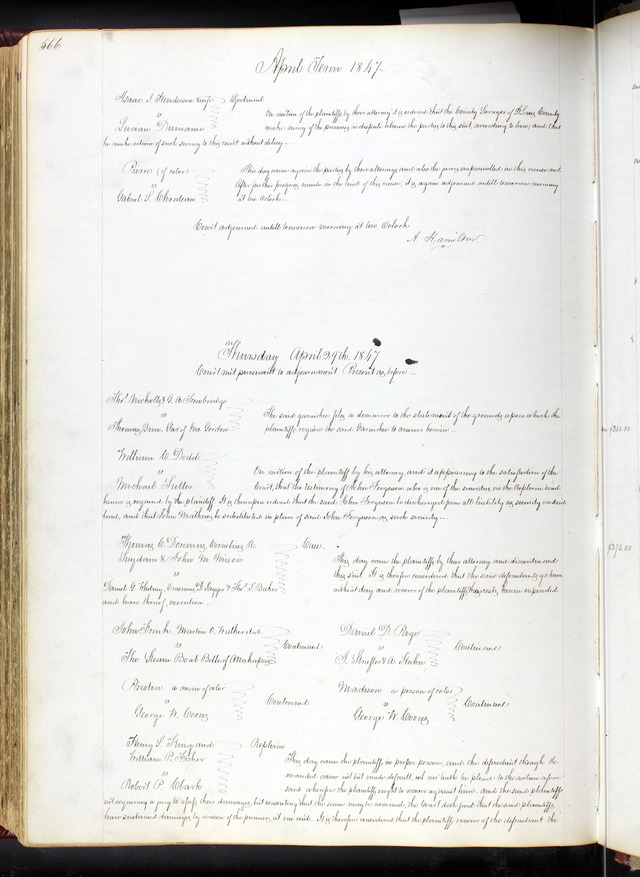 566
April Term 1847.
Isaac J. Henderson
vs
Ejectment
On motion of the plaintiffs by their attorney it is ordered that the County Surveyor of St. Louis County
make survey of the premises in dispute between the parties to this suit, according to law, and that
he make return of such survey to this court without delay.
Pierre (of color)
vs
Gabriel S. Chouteau
This day came again the parties by their attorneys and also the jurors empannelled in this cause and
after further progress made in the trial of this cause, it is again adjourned untill tomorrow morning
at ten oclock.
Court adjourned untill tomorrow morning at ten Oclock
A. Hamilton
Thursday April 29th 1847
Court met pursuant to adjournment Present as before
Thos Nicholls & G. A. Trowbridge
vs
Gordon
The said garnishee files a demurrer to the statement of the grounds upon which the
plaintiffs require the said Garnishee to answer herein.
William C. Dodd
vs
Michael Suttor
On motion of the plaintiff by his attorney and it appearing to the satisfaction of the
Court, that the testimony of John Ferguson who is one of the securities on the Replevin bond
herein is required by the plaintiff. It is thereupon ordered that the said John Ferguson be discharged from all liability as security on said
bond, and that John be substituted in place of said John Ferguson as such security.
Thomas C. Doremus, Cornelius R.
Suydam & John M. Nixon
vs
Daniel G. Hatney, Erasmus D. & Thos S. Baker
Case.
This day came the plaintiffs by their attorney and discontinued
this suit. It is therefore considered that the said defendants go hence
without day and recover of the plaintiffs their costs herein expended
and have thereof execution.
John Finch, Martin O.
vs
The Steam Boat Belle of Attakapas
Continued
Daniel D. Page
vs
Continued
Preston a man of color
vs
George W. Coons
Continued
Madison a person of color
vs
George W. Coons
Continued
Henry S. King and
William P. Fisher
vs
Robert P. Clark
Replevin
This day came the plaintiffs in proper person, and the defendant though de
manded came not but made default, nor hath he plead to the action afore
said wherefore the plaintiffs ought to recover against him. And the said plaintiffs
not requiring a jury to assess their damages, but consenting that the same may be assessed, the Court doth find that the said plaintiffs
have sustained damages by reason of the premises, at one cent. It is therefore considered that the plaintiffs recover of the defendant the
$375.00